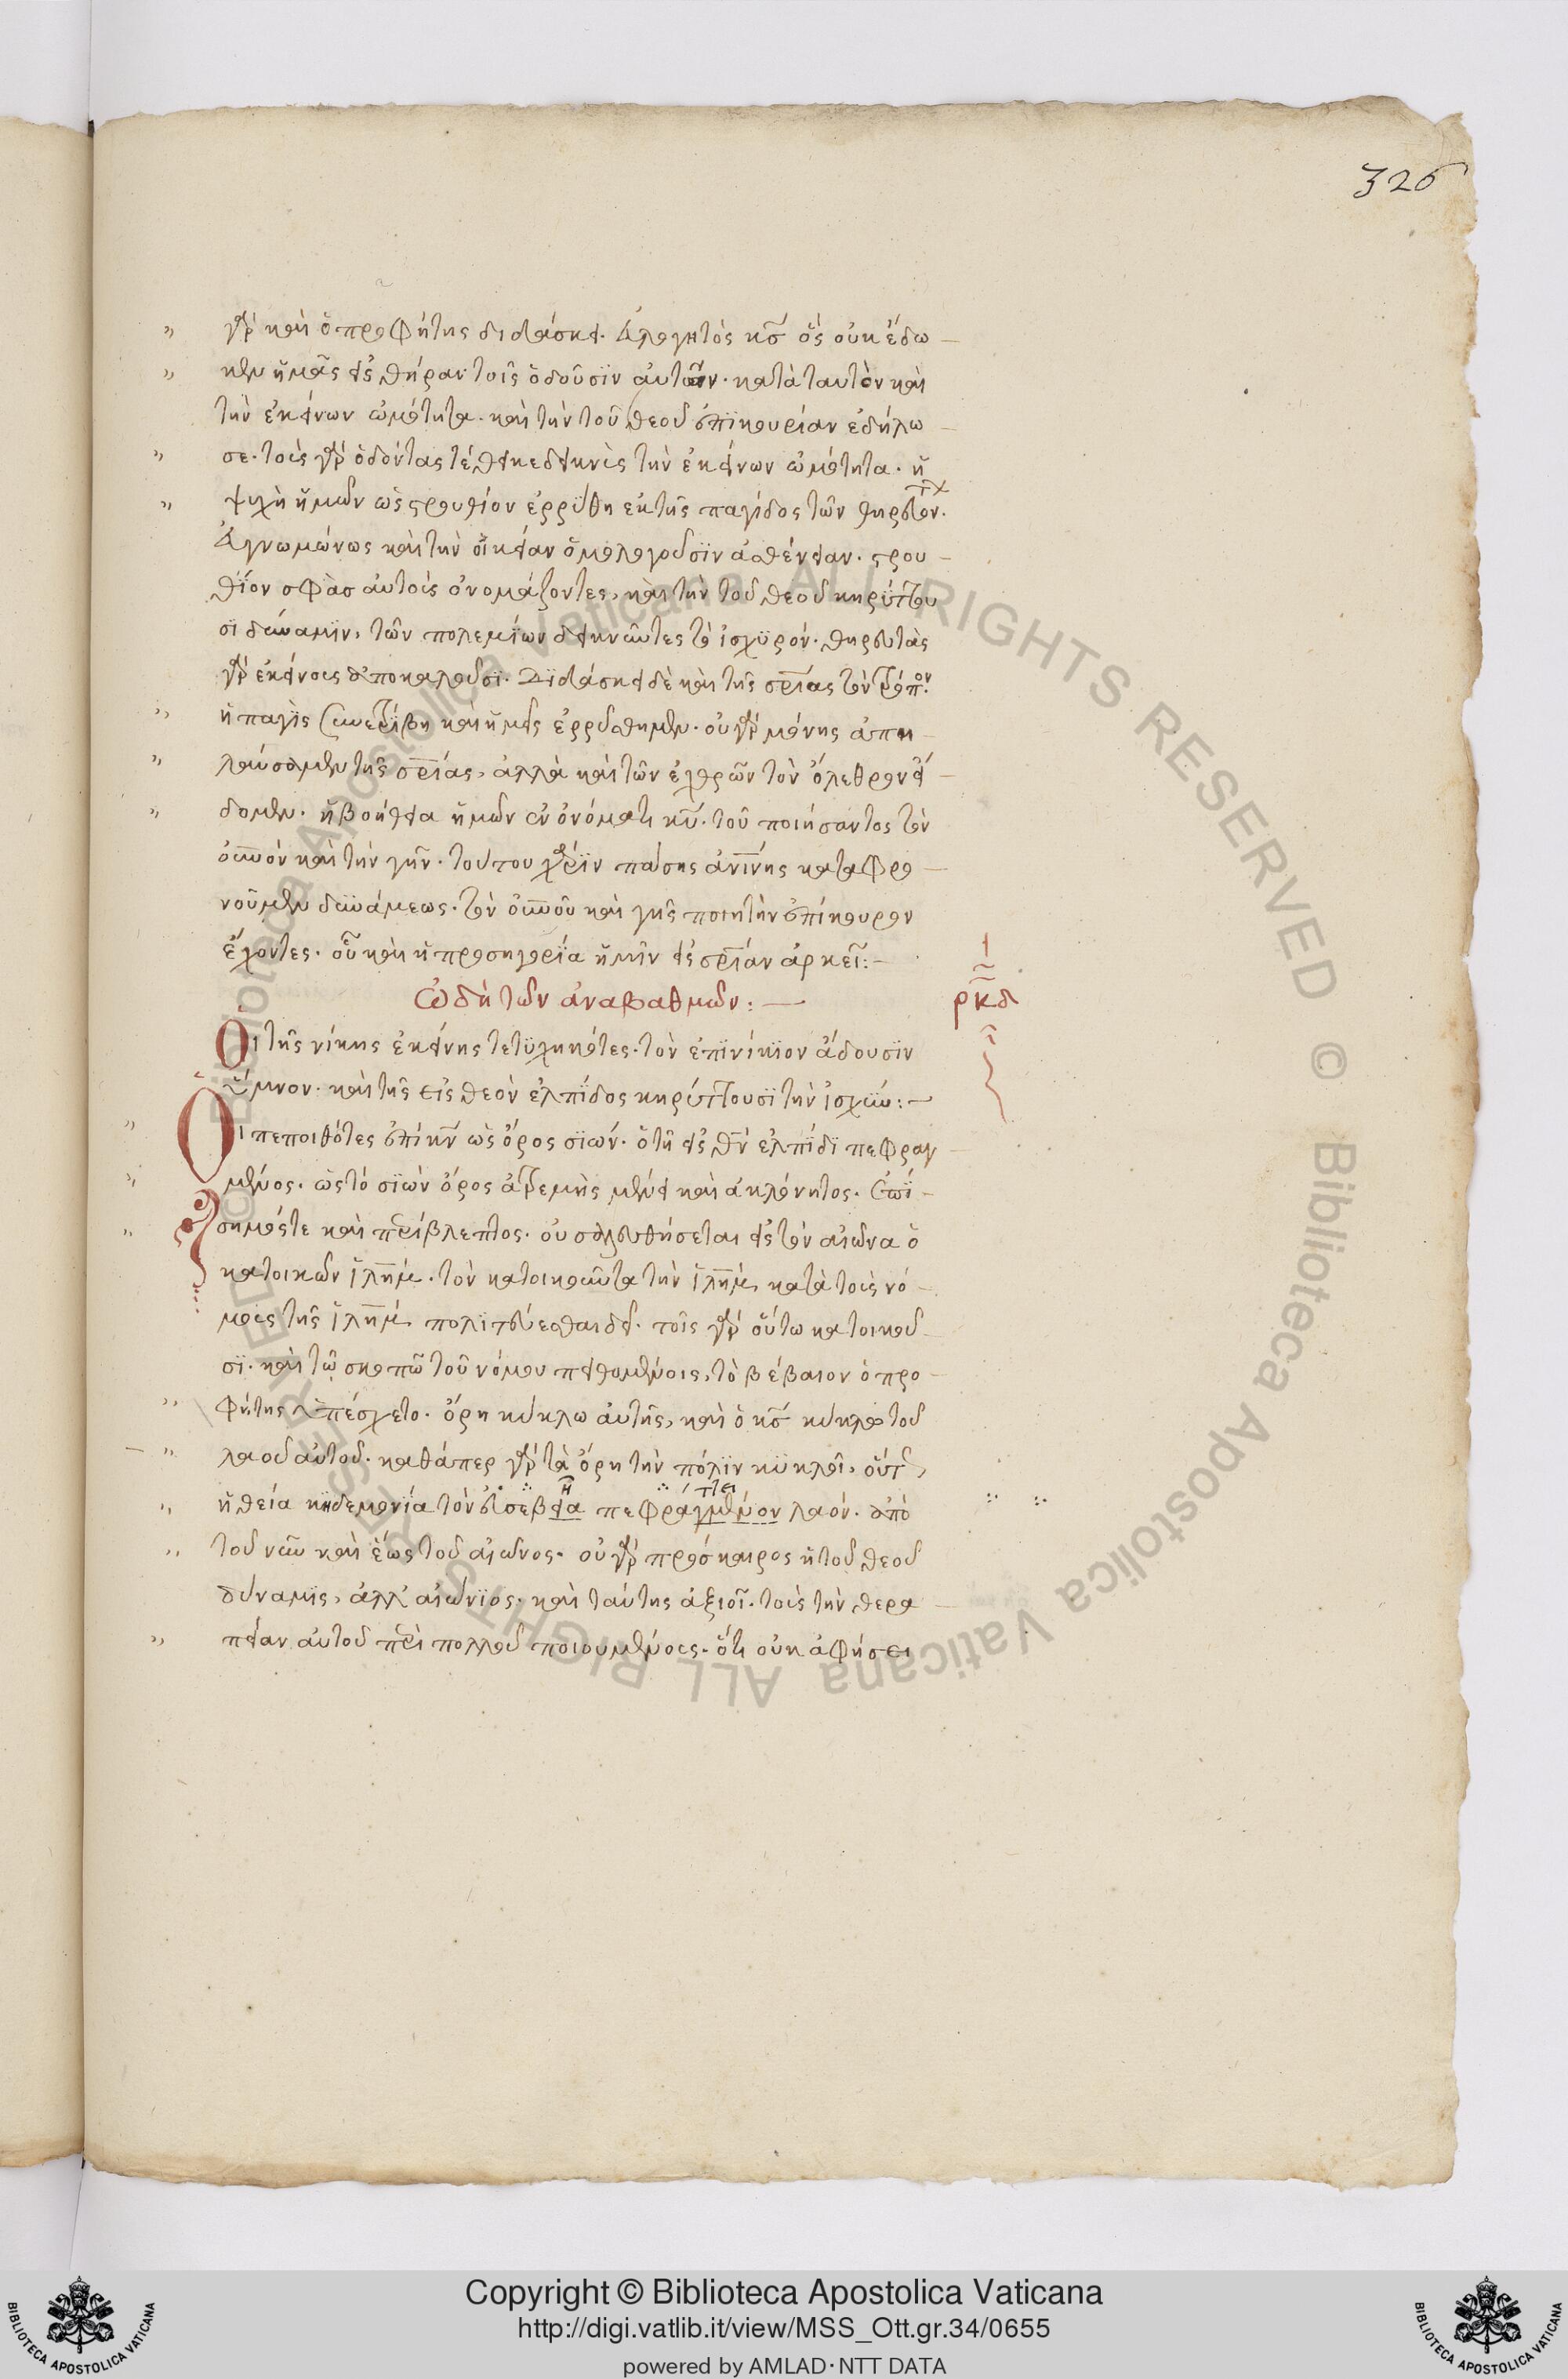 326
γὰρ καὶ ὁ προφήτης διδάσκει. εὐλογητὸς κς ὃς οὐκ ἔδω
κεν ἡμᾶς εἰς θήραν τοῖς ὀδοῦσιν αὐτῶν. κατὰ ταυτὸν καὶ
τὴν ἐκείνων ὠμότητα. καὶ τὴν τοῦ θεοῦ ἐπικουρίαν ἐδήλω
σε. τοὺς γὰρ ὀδόντας τέθεικε δεικνὺς τὴν ἐκείνων ὠμότητα. ἡ
ψυχὴ ἡμῶν ὡς στρουθίον ἐρρύσθη ἐκ τῆς παγίδος τῶν θηρευόντων.
εὐγνωμόνως καὶ τὴν οἰκείαν ὁμολογοῦσιν ἀσθένειαν. στρου
θίον σφᾶσ αὐτοὺς ὀνομάζοντες, καὶ τὴν τοῦ θεοῦ κηρύττου
σι δύναμιν, τῶν πολεμίων δεικνῦντες τὸ ἰσχυρόν. θηρευτὰς
γὰρ ἐκείνους ἀποκαλοῦσι. Διδάσκει δὲ καὶ τῆς σριας τὸν τρόπον.
ἡ παγὶς συνετρίβη καὶ ἡμεῖς ἐρρύσθημεν. οὐ γὰρ μόνης ἀπη
λαύσαμεν τῆς σριας, ἀλλὰ καὶ τῶν ἐχθρῶν τὸν ὄλεθρον εἴ
δομεν. ἡ βοήθεια ἡμῶν ἐν ὀνόματι κυ. τοῦ ποιήσαντος τὸν
οὐνὸν καὶ τὴν γῆν. τούτου χάριν πάσης ἀνίνης καταφρο
νοῦμεν δυνάμεως. τὸν οὐνοῦ καὶ γῆς ποιητὴν ἐπίκουρον
ἔχοντες. οὗ καὶ ἡ προσηγορία ἡμῖν εἰς σριαν ἀρκεῖ:
Ὠδὴ τῶν ἀναβαθμῶν: ρκδ
Οἱ τῆς νίκης ἐκείνης τετυχηκότες. τὸν ἐπινίκιον ᾄδουσιν
ὕμνον. καὶ τῆς εἰς θεὸν ἐλπίδος κηρύττουσι τὴν ἰσχύν:
Οἱ πεποιθότες ἐπὶ κν ὡς ὄρος σιών. ὁ τῇ εἰς θν ἐλπίδι πεφραγ
μένος. ὡς τὸ σιὼν ὄρος ἀτρεμὴς μένει καὶ ἀκλόνητος. ἐπί
σημός τε καὶ περίβλεπτος. οὐ σαλευθήσεται εἰς τὸν αἰῶνα ὁ
κατοικῶν ἱλημ. τὸν κατοικοῦντα τὴν ἱλημ κατὰ τοὺς νό
μους τῆς ἱλημ πολιτεύεσθαι δεῖ. τοῖς γὰρ οὕτω κατοικοῦ
σι. καὶ τῷ σκοπῷ τοῦ νόμου πειθομένοις, τὸ βέβαιον ὁ προ
φήτης ὑπέσχετο. ὄρη κύκλω αὐτῆς, καὶ ὁ κς κύκλω τοῦ
λαοῦ αὐτοῦ. καθάπερ γὰρ τὰ ὄρη τὴν πόλιν κυκλοῖ, οὕτ
ἡ θεία κηδεμονία τὸν εὐσεβεία πεφραγμένον λαόν. ἀπὸ
τοῦ νῦν καὶ ἕως τοῦ αἰῶνος. οὐ γὰρ πρόσκαιρος ἡ τοῦ θεοῦ
δύναμις, ἀλλ' αἰώνιος. καὶ ταύτης ἀξιοῖ. τοὺς τὴν θερα
πείαν αὐτοῦ περὶ πολλοῦ ποιουμένους. ὅτι οὐκ ἀφήσει
Copyright © Biblioteca Apostolica Vaticana
http://digi.vatlib.it/view/MSS_Ott.gr.34/0655
powered by AMLAD·NTT DATA
BIBLIOTECA APOSTOLICA VATICANA
BIBLIOTECA APOSTOLICA VATICANA
© Biblioteca Apostolica Vaticana ALL RIGHTS RESERVED © Biblioteca Apostolica Vaticana ALL RIGHTS RESERVED